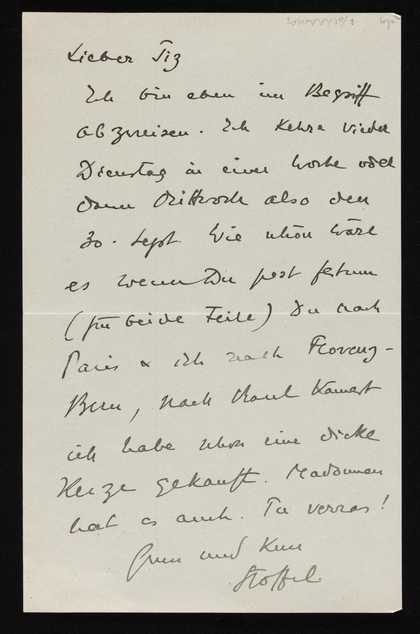 Lieber Tiz
Ich bin eben im Begriff
abzureisen. Ich kehre wieder
Dienstag in einer Woche oder
dann Mittwoch also den
30. Sept Wie schön wäre
es wenn Du post festum
(für beide Teile) Du nach
Paris & ich nach Florenz-
Bern, nach kamst
ich habe schon eine dicke
Kerze gekauft. Madonnen
hat es auch. Tu verras!
und
Stoffel